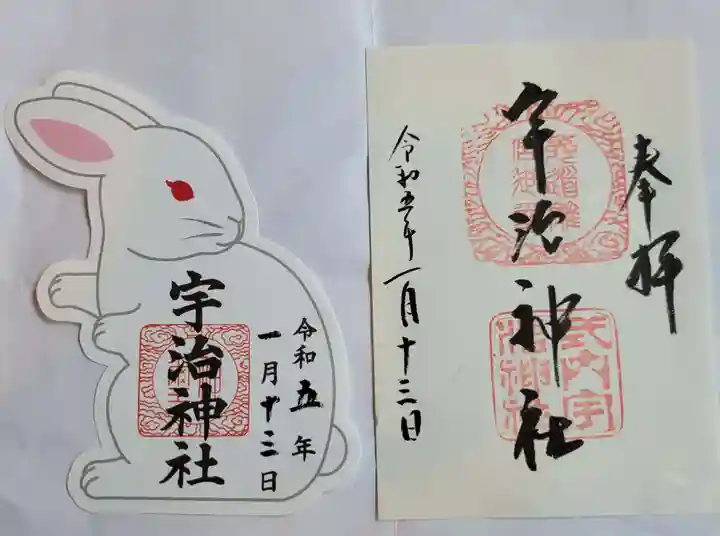 宇治神社
令和五年
一月十三日
奉拝
宇治神社
令和五年一月十三日